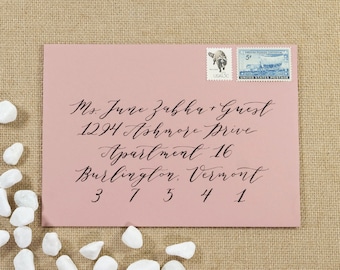 Ms. June Zabka + Guest
1294 Ashmore Drive
Apartment 16
Burlington, Vermont
3 7 5 4 1